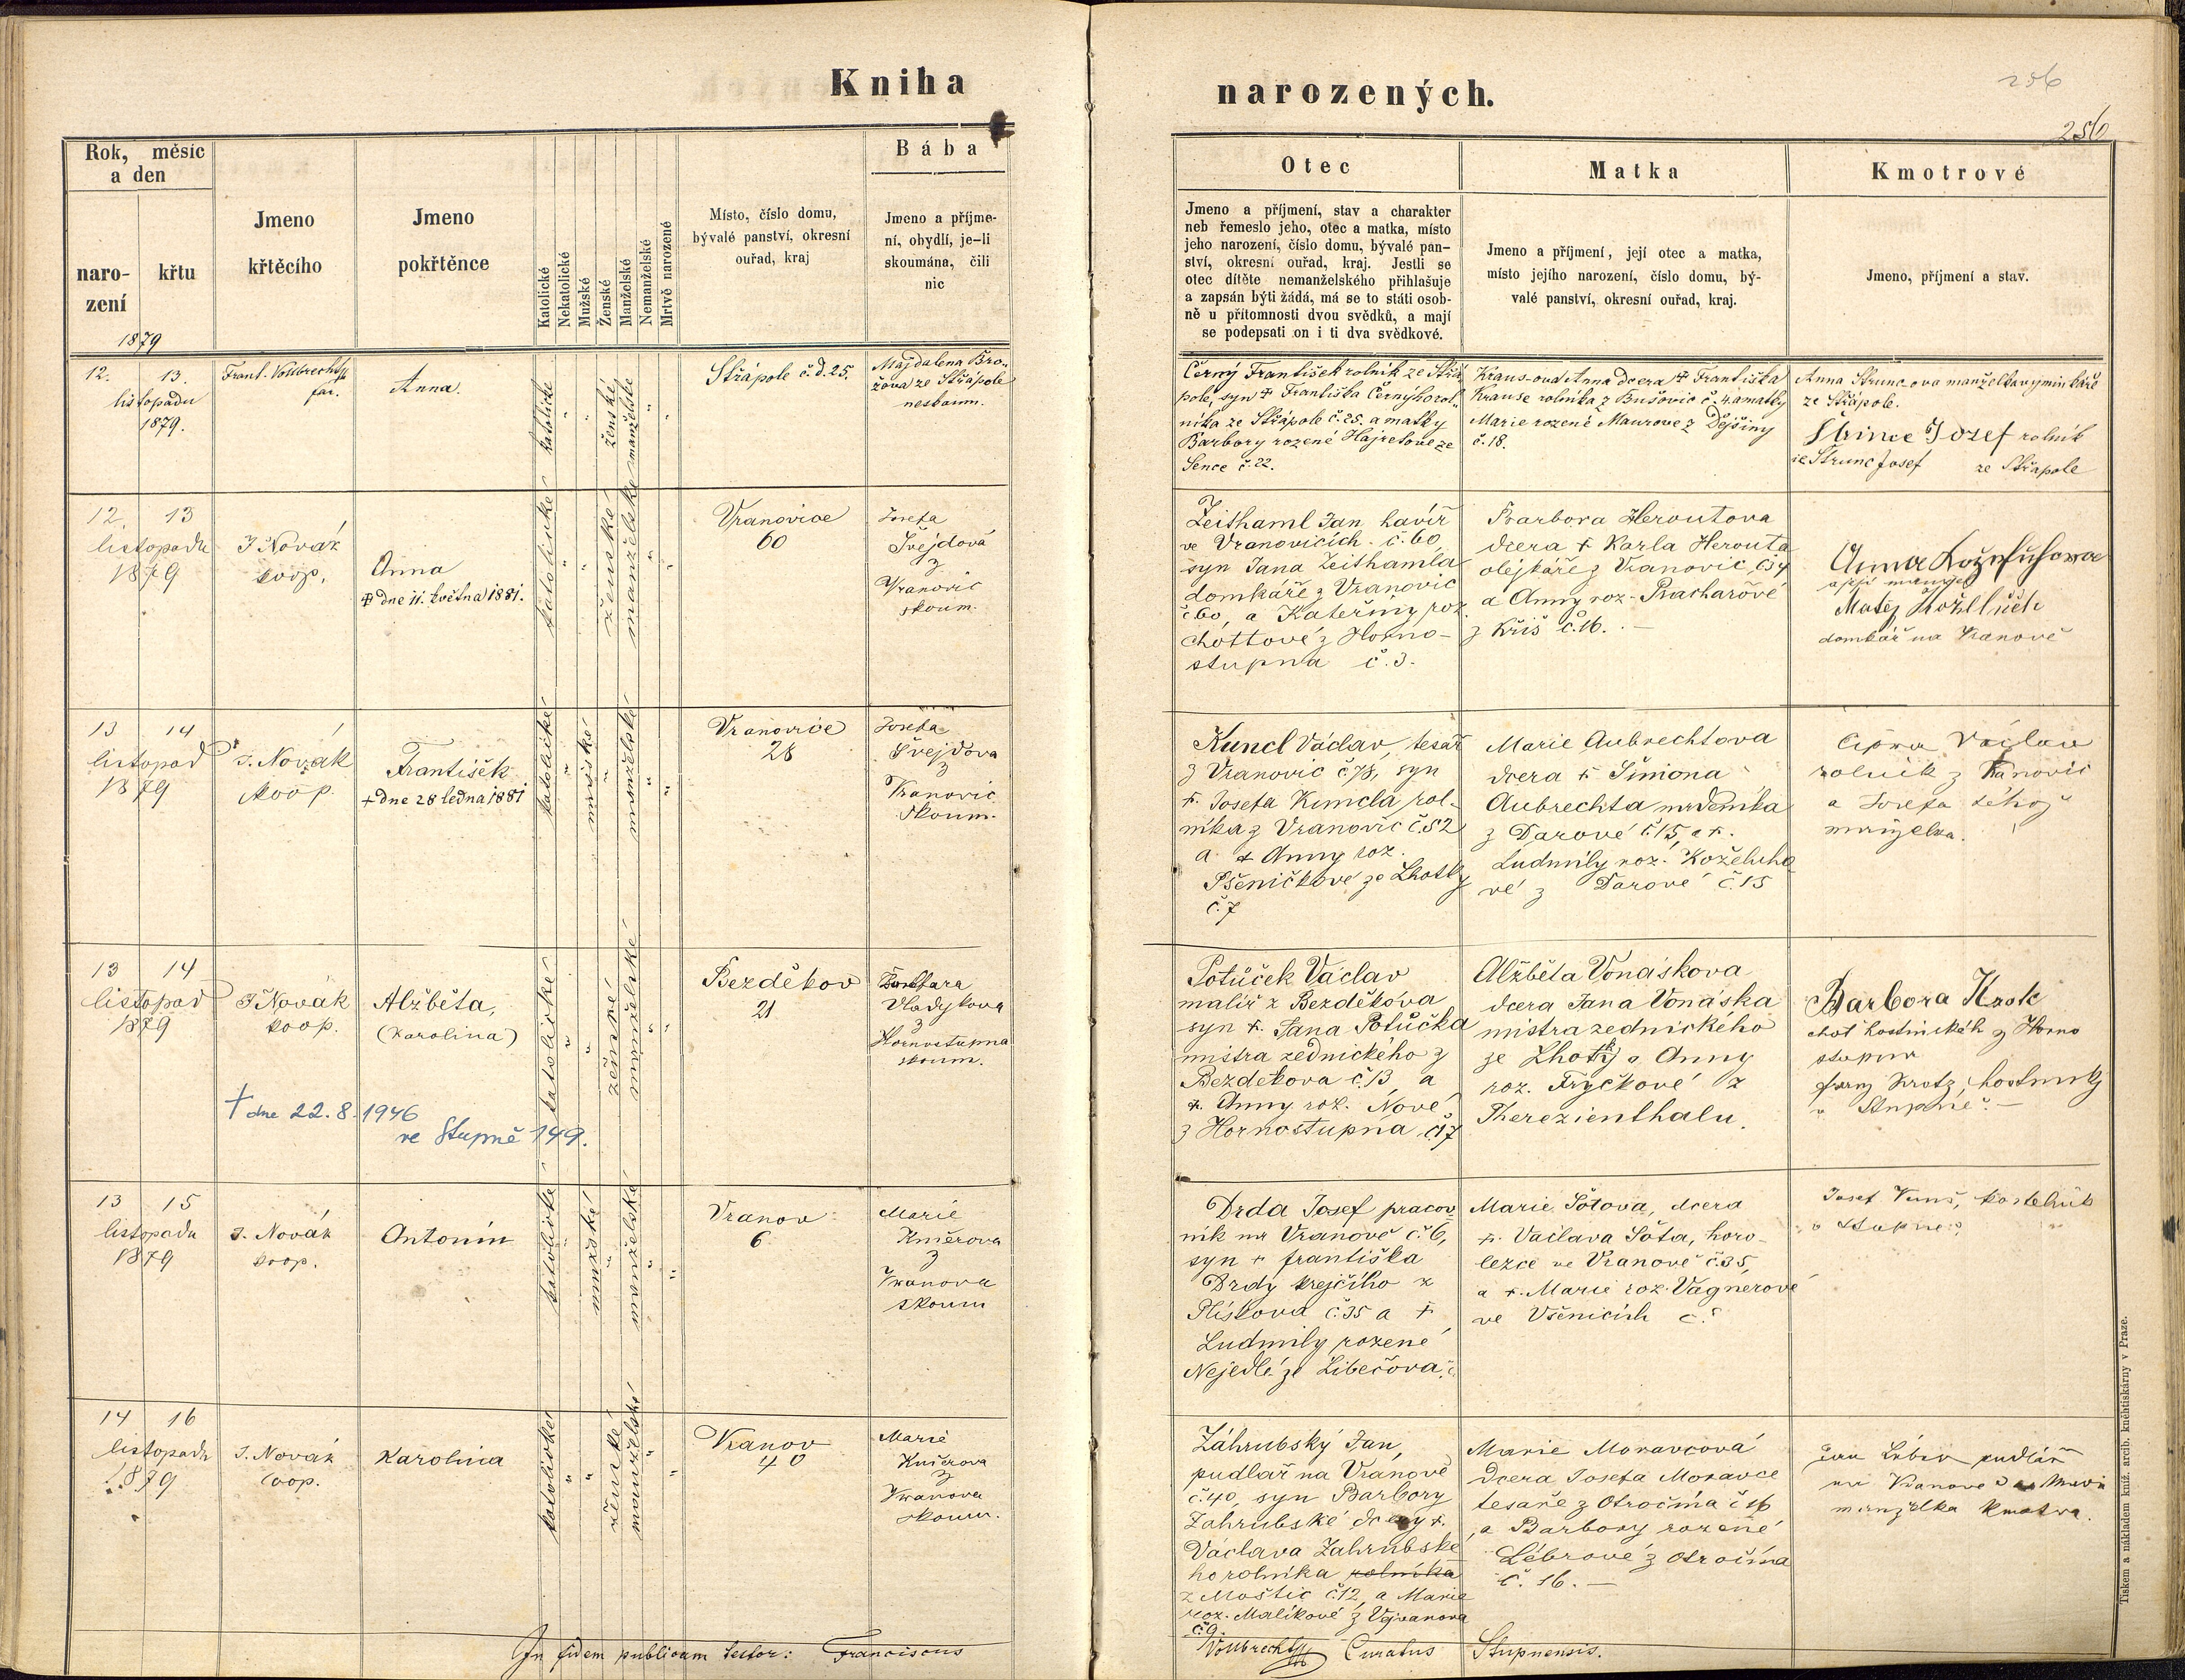 Kniha
narozených.
256
256
Rok, měsíc
a den
naro-
zení
křtu
1879
Jmeno
křtěcího
Jmeno
pokřtěnce
Katolické
Nekatolické
Mužské
Ženské
Manželské
Nemanželské
Mrtvě narozené
Místo, číslo domu,
bývalé panství, okresní
ouřad, kraj
Bába
Jmeno a příjme-
ní, obydlí, je-li
skoumána, čili
nic
Otec
Jmeno a příjmení, stav a charakter
neb řemeslo jeho, otec a matka, místo
jeho narození, číslo domu, bývalé pan-
ství, okresní ouřad, kraj. Jestli se
otec dítěte nemanželského přihlašuje
a zapsán býti žádá, má se to státi osob-
ně u přítomnosti dvou svědků, a mají
se podepsati on i ti dva svědkové.
Matka
Jmeno a příjmení, její otec a matka,
místo jejího narození, číslo domu, bý-
valé panství, okresní ouřad, kraj.
Kmotrové
Jmeno, příjmení a stav.
12. 13.
listopadu
1879.
Frant. Vollbrecht
far.
Anna.
katolické
ženské
manželské
Střápole č. d. 25.
Majdalena Bro-
žova ze Střápole
neskoum.
Černý František rolník ze Střá
pole, syn + Františka Černýho rol-
níka ze Střápole č. 25. a matky
Barbory rozené Hajretove ze
Sence č. 22.
Kraus-ova Anna dcera + Františka
Krause rolníka z Bušovic č. 4. a matky
Marie rozené Maurove z Dejšiny
č. 18.
Anna Struncova manželka výminkáře
ze Střápole.
Strinc Jozef rolník
ie Strunc Josef ze Střapole
12. 13
listopadu
1879
J Novák
koop.
Anna
+ dne 11. května 1881.
katolické
ženské
manželské
Vranovice
60
Josefa
Švejdová
z
Vranovic
skoum.
Zeithaml Jan, havíř
ve Vranovicích č. 60
syn Jana Zeithamla
domkáře z Vranovic
č 60, a Kateřiny roz.
Chottové z Horno-
stupna č. 3.
Barbora Heroutova
dcera + Karla Herouta
olejkáře z Vranovic č 54
a Anny roz. Prachařové
z Kříš č. 16.
Anna Koželuhova
a její manžel
Matěj Koželuh
domkář na Vranově
13 14
listopad
1879
J. Novák
koop.
František
+ dne 28 ledna 1881
katolické
mužské
manželské
Vranovice
28
Josefa
Švejdova
z
Vranovic
skoum.
Kuncl Václav, tesař
z Vranovic č. 78, syn
+. Josefa Kuncla rol-
níka z Vranovic č. 52
a + Anny roz.
Pšeničkové ze Lhotky
č. 7
Marie Aubrechtova
dcera +. Šimona
Aubrechta mrdeníka
z Darové č. 15, a +.
Ludmily roz. Koželuho
vé z Darové č. 15
Václav
rolník z Vranovic
a Josefa téhož
manželka.
13 14
listopad
1879
J Novák
koop.
Alžběta,
(Karolina)
+ dne 22. 8. 1946
ve Stupně 149.
katolické
ženské
manželské
Bezděkov
21
Vladykova
z
Hornostupna
skoum.
Potůček Václav
malíř z Bezděkova
syn +. Jana Potůčka
mistra zednického z
Bezdekova č. 13 a
+. Anny roz. Nové
z Hornostupna č. 17
Alžběta Vonáskova
dcera Jana Vonáska
mistra zednického
ze Lhoty a Anny
roz. Fryčkové z
Therezienthalu.
Barbora Krok
choť hostinského z Horno
stupna
hostinský
v Stupně.
13 15
listopadu
1879
J. Novák
koop.
Antonín
katolické
mužské
manželské
Vranov
6
Marie
Knierova
z
Vranova
skoum
Drda Josef pracov
ník na Vranově č. 6,
syn + františka
Drdy krejčího z
Plískova č. 35 a +
Ludmily rozené
Nejedlé ze Libečova č.
Marie Šotova, dcera
+. Václava Šota, horo-
lezce ve Vranově č. 35,
a +. Marie roz. Vagnerové
ve Všenicích č.
Josef kostelník
v Stupně.
14 16
listopadu
1879
J. Novák
coop.
Karolina
katolické
ženské
manželské
Vranov
40
Marie
Knierova
z
Vranova
skoum.
Záhrubský Jan,
pudlař na Vranově
č. 40, syn Barbory
Zahrubské dcery +.
Václava Zahrubské
ho rolníka rolníka
z Moštic č. 12, a Marie
roz. Malíkové z Vejvanova
č. 9.
Marie Moravcová
dcera Josefa Moravce
tesaře z Otročína č 16
a Barbory rozené
Lébrové z Otročína
č. 16. —
Jan pudlář
na Vranově a Marie
manželka kmotra.
In fidem publicam testor: Franciscus
Vollbrecht Curatus Stupnensis.
Tiskem a nákladem kníž. arcib. knihtiskárny v Praze.